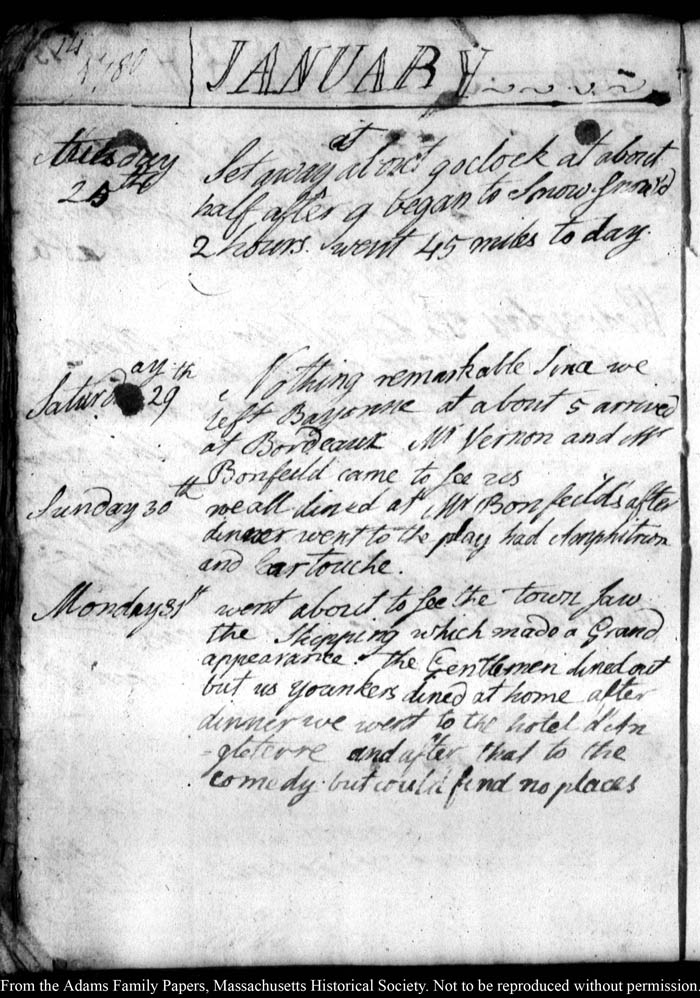 14
1780
JANUARY
Tuesday
25th
Set away at about 9 oclock at about
half after 9 began to Snow. Snow'd
2 hours. went 45 miles to day.
Saturday th
29
Nothing remarkable Since we
left Bayonne at about 5 arrived
at Bordeaux Mr Vernon and Mr
Bonfeild came to See us
Sunday 30th
we all dined at Mr Bonfeilds after
dinner went to the play had Amphitrion
and Cartouche.
Monday 31st
went about to See the town Saw
the Shipping which made a Grand
appearance. the Gentlemen dined out
but us Younkers dined at home after
dinner we went to the hotel d'An
-gleterre and after that to the
comedy. but could find no places
From the Adams Family Papers, Massachusetts Historical Society. Not to be reproduced without permission.